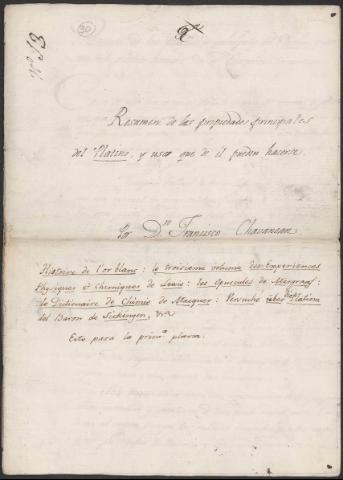 30
Resumen de las propiedades principales
del Platino, y usos que de él pueden hacerse.
Por Dn Francisco Chavaneau
Histoire de l'or blanc: le troisieme volume des Experiences
Physiques et Chemiques de Lewis: les opuscules de Margraaf:
le Dictionaire de Chimie de Macquer: Versuche über das Platina
del Baron de Sickingen, &c
Esto para la prima plana.